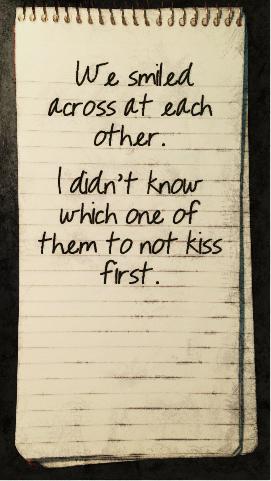 We smiled
across at each
other.
I didn't know
which one of
them to not kiss
first.